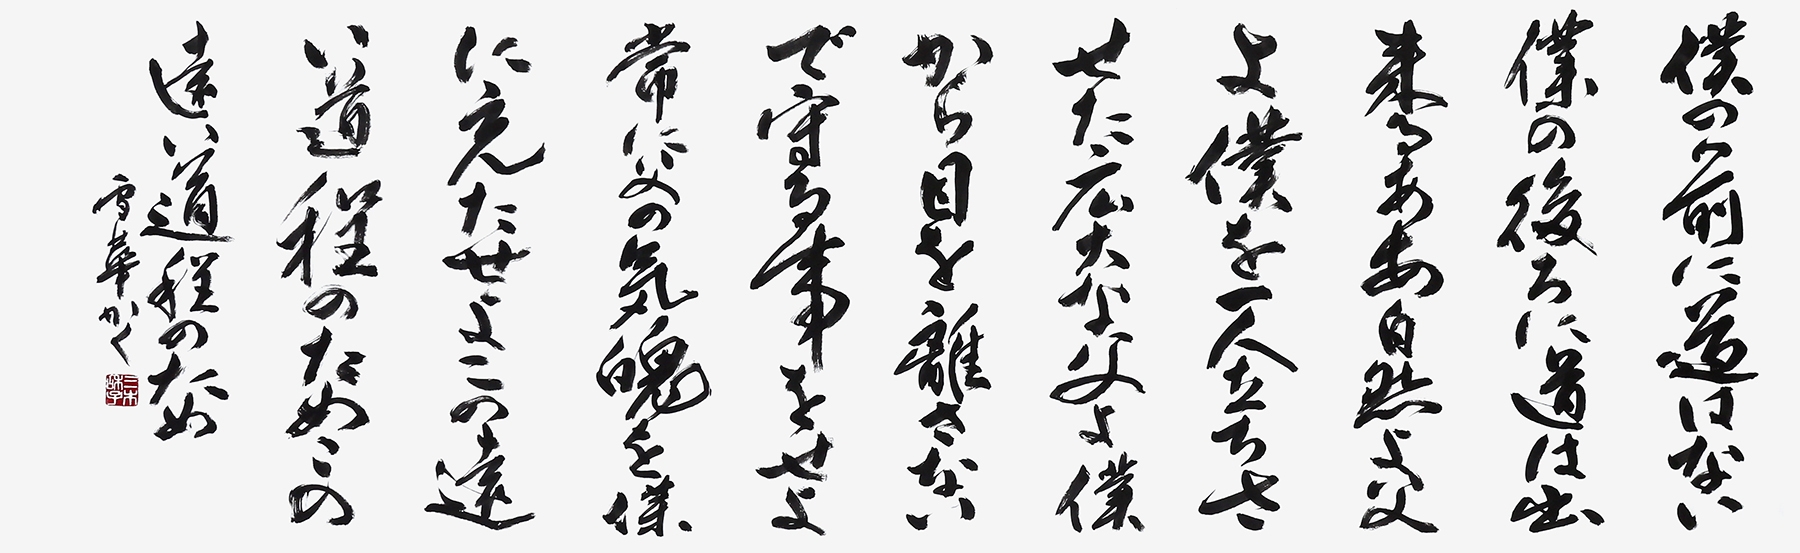 僕の前に道はない
僕の後ろに道は出
来るああ自然よ父
よ僕を一人立ちさ
せた広大な父よ僕
から目を離さない
で守る事をせよ
常に父の気魄を僕
に充たせよこの遠
い道程のためこの
遠い道程のため
雪華かく